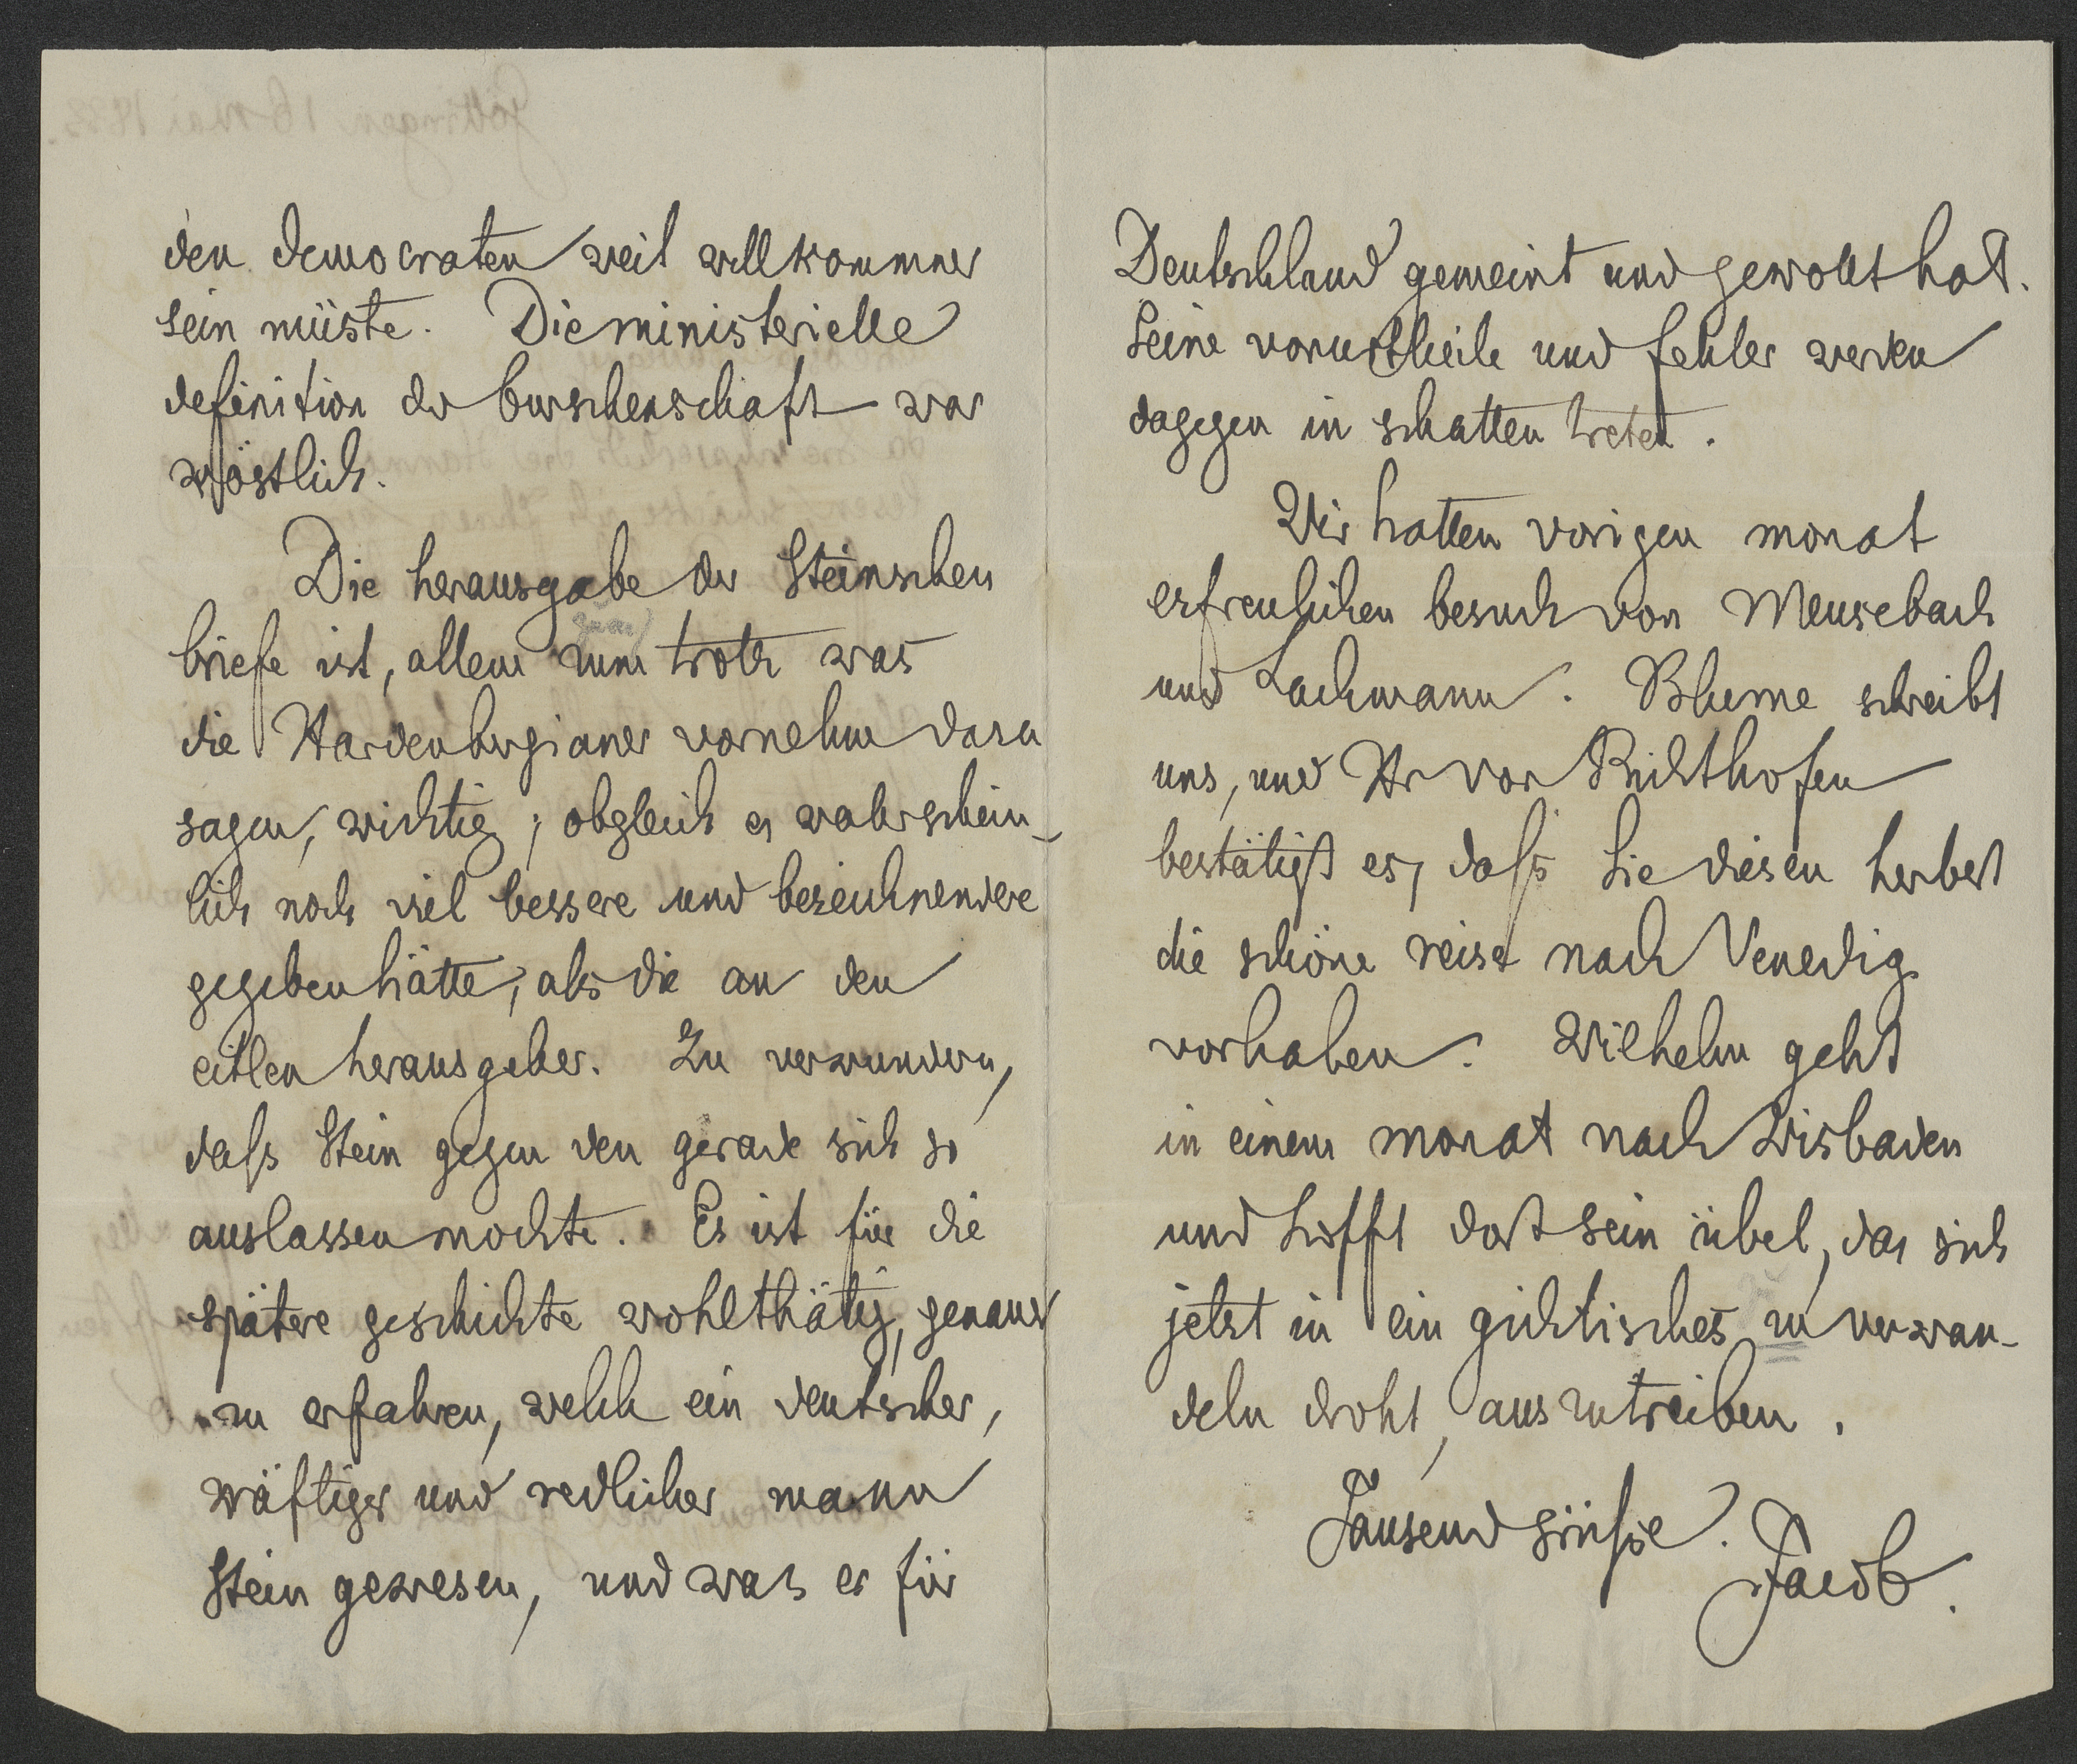 den democraten weit willkommner
sein müste. Die ministerielle
definition der burschenschaft war
köstlich.
Die herausgabe der Steinschen
briefe ist, allem zum trotz was
die Hardenbergianer vornehm dazu
sagen, wichtig; obgleich er wahrschein-
lich noch viel bessere und bezeichnendere
gegeben hätte, als die an den
eitlen herausgeber. Zu verwundern,
daſs Stein gegen den gerade sich so
auslassen mochte. Es ist für die
spätere geschichte wohlthätig, genauer
zu erfahren, welch ein deutscher,
kräftiger und redlicher mann
Stein gewesen, und was er für
Deutschland gemeint und gewollt hat.
Seine vorurtheile und fehler werden
dagegen in schatten treten.
Wir hatten vorigen monat
erfreulichen besuch von Meusebach
und Lachmann. Blume schreibt
uns, und Hr von Richthofen
bestätigt es, daſs Sie diesen herbst
die schöne reise nach Venedig
vorhaben. Wilhelm geht
in einem monat nach Wisbaden
und hofft dort sein übel, das sich
jetzt in ein gichtisches zu verwan-
deln droht, auszutreiben.
Tausend grüſse.
Jacob.